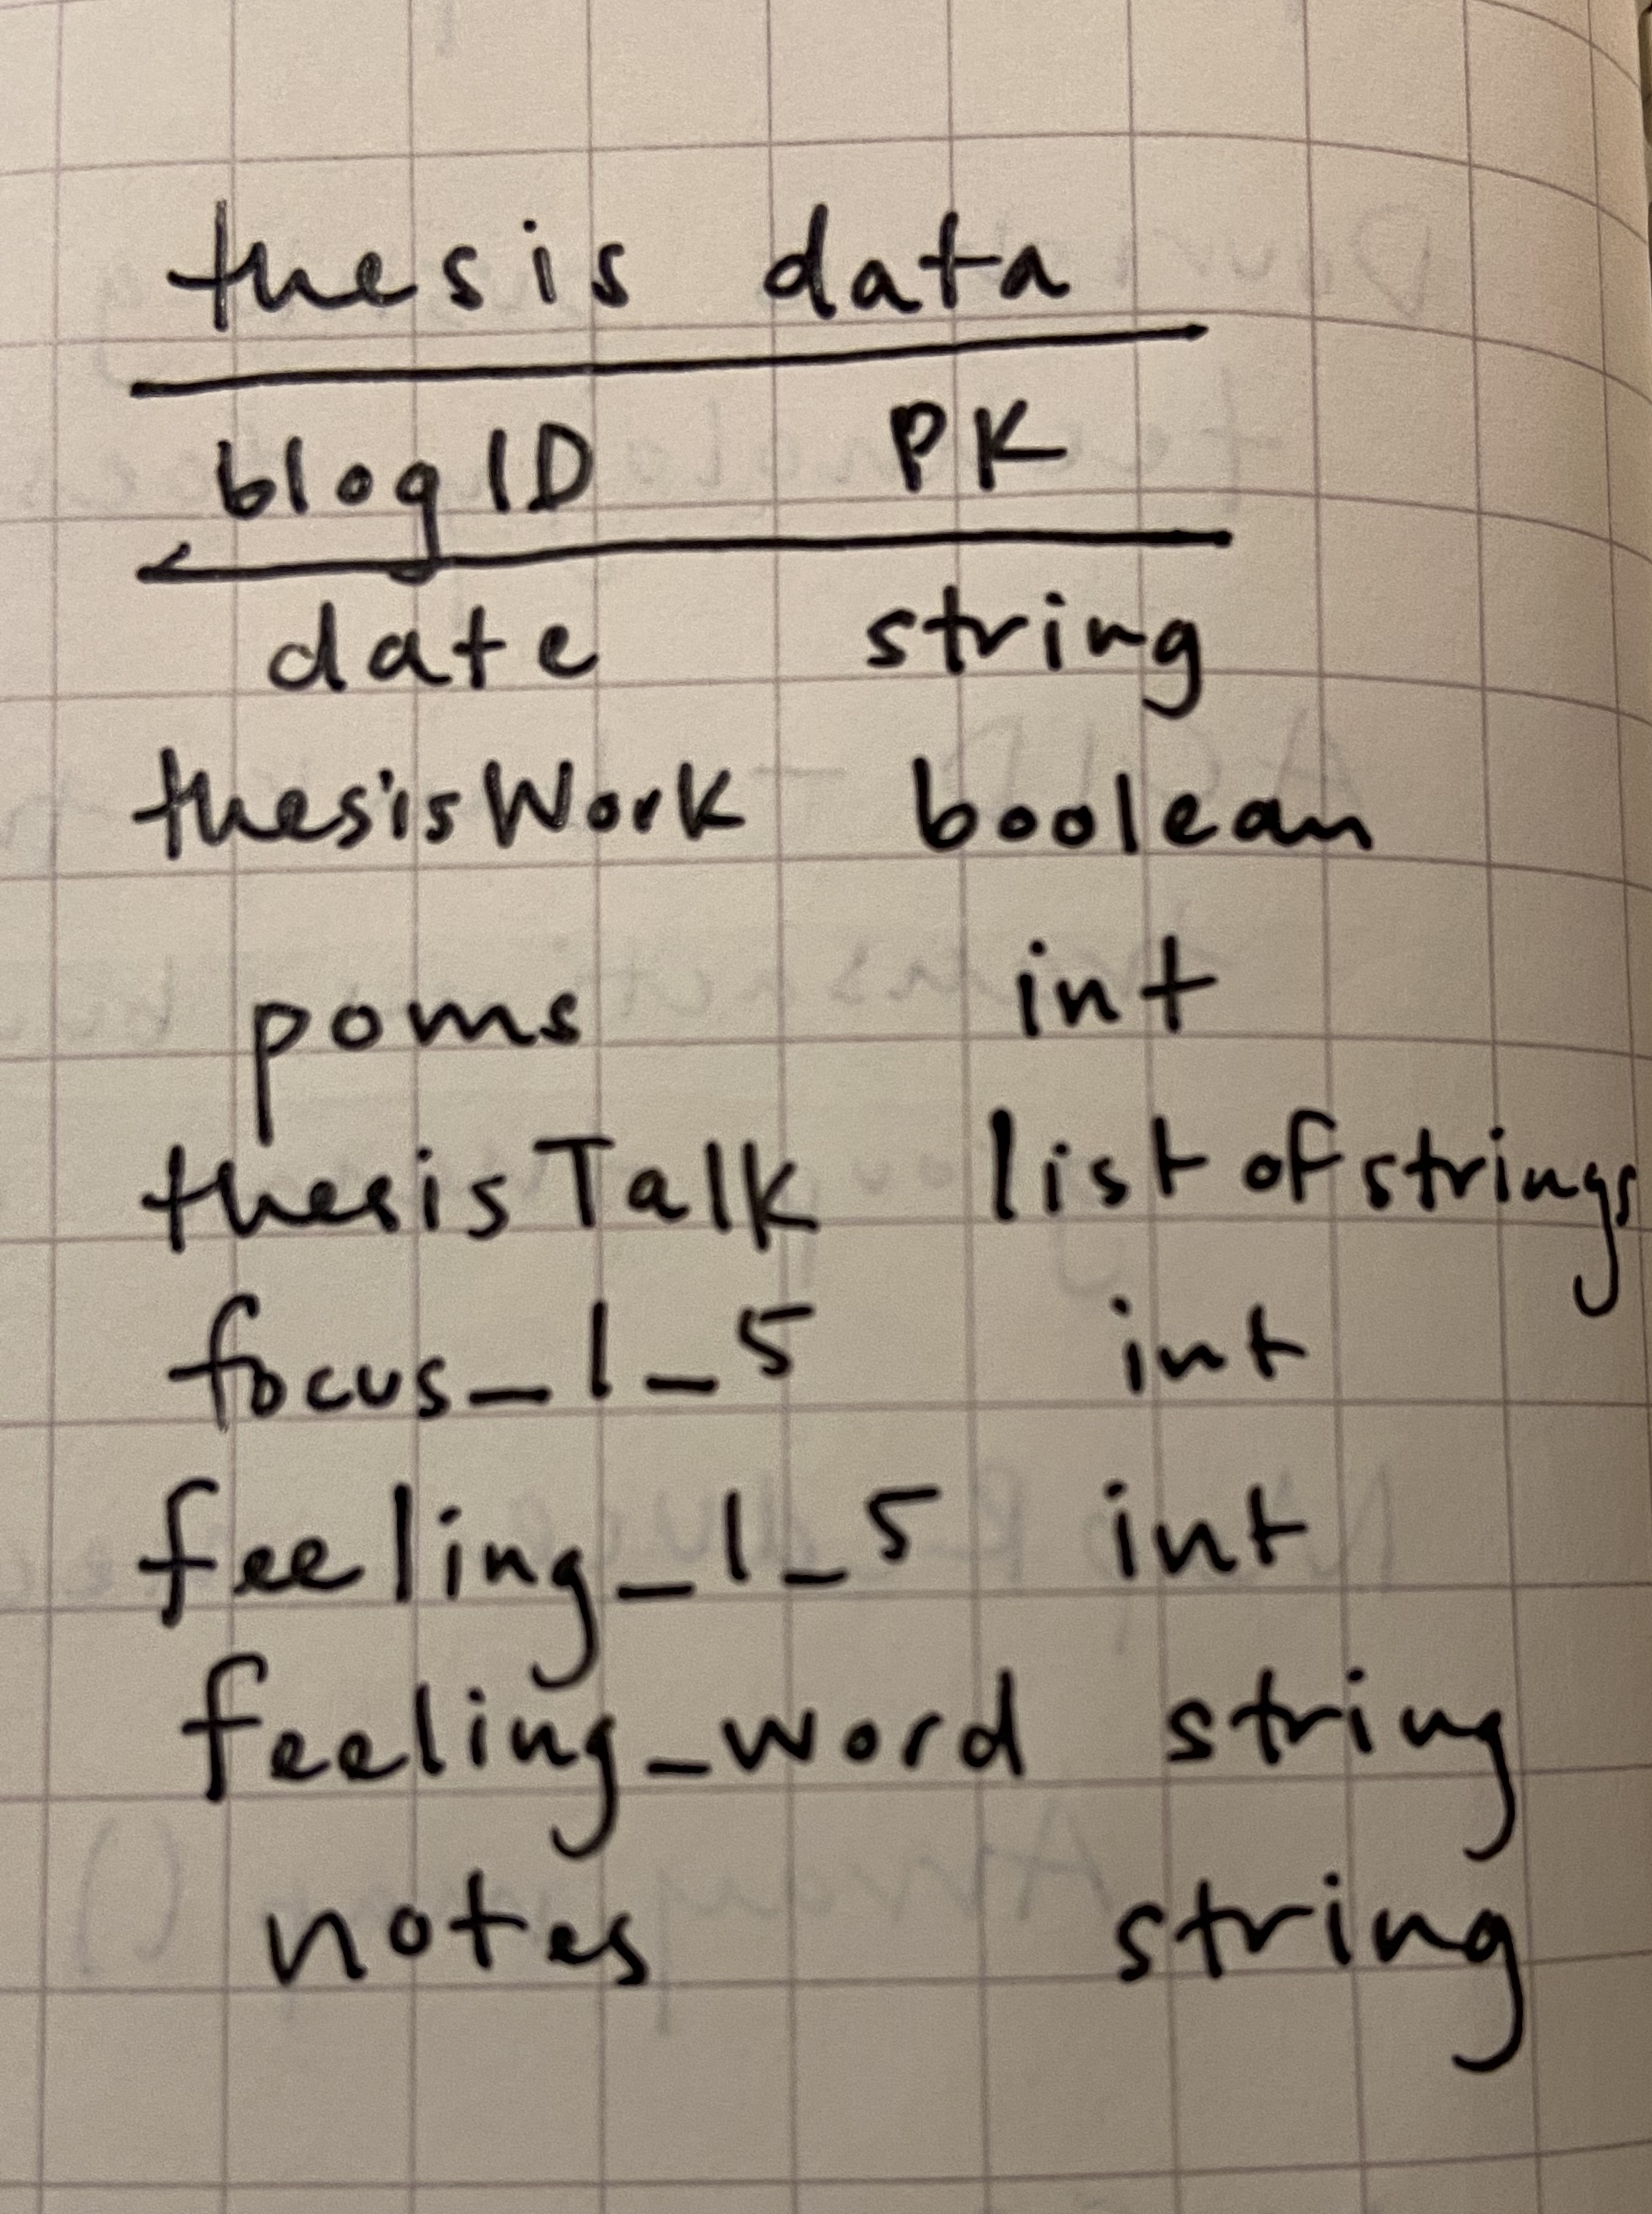 thesis data
blogID PK
date string
thesisWork boolean
poms int
thesisTalk list of strings
focus_1_5 int
feeling_1_5 int
feeling_word string
notes string